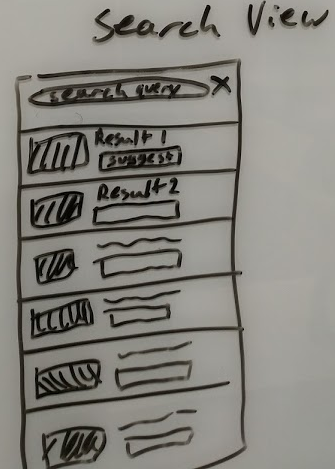 Search View
search query X
Result 1
suggest
Result 2